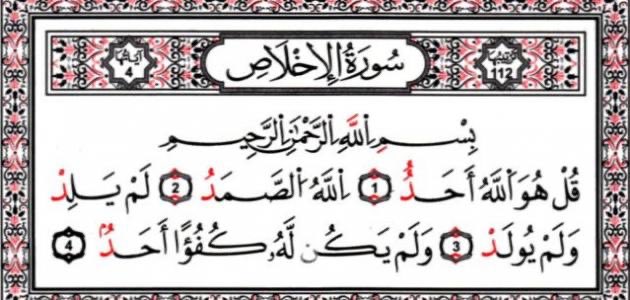 ترتيبها سُورَةُ الإِخْلَاصِ آياتها
112 4
بِسْمِ اِللَّهِ اِلرَّحْمَٰنِ اِلرَّحِيمِ
قُلْ هُوَ اَللَّهُ أَحَدٌ 1 اَللَّهُ اُلصَّمَدُ 2 لَمْ يَلِدْ
وَلَمْ يُولَدْ 3 وَلَمْ يَكُن لَّهُۥ كُفُؤًا أَحَدٌۢ 4